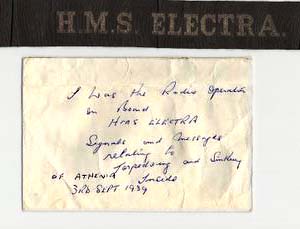 H.M.S. ELECTRA.
I was the Radio Operator
on Board
HMS ELECTRA
Signals and Messages
relating to
Torpedoing and Sinking
OF ATHENIA Inside
3RD SEPT 1939